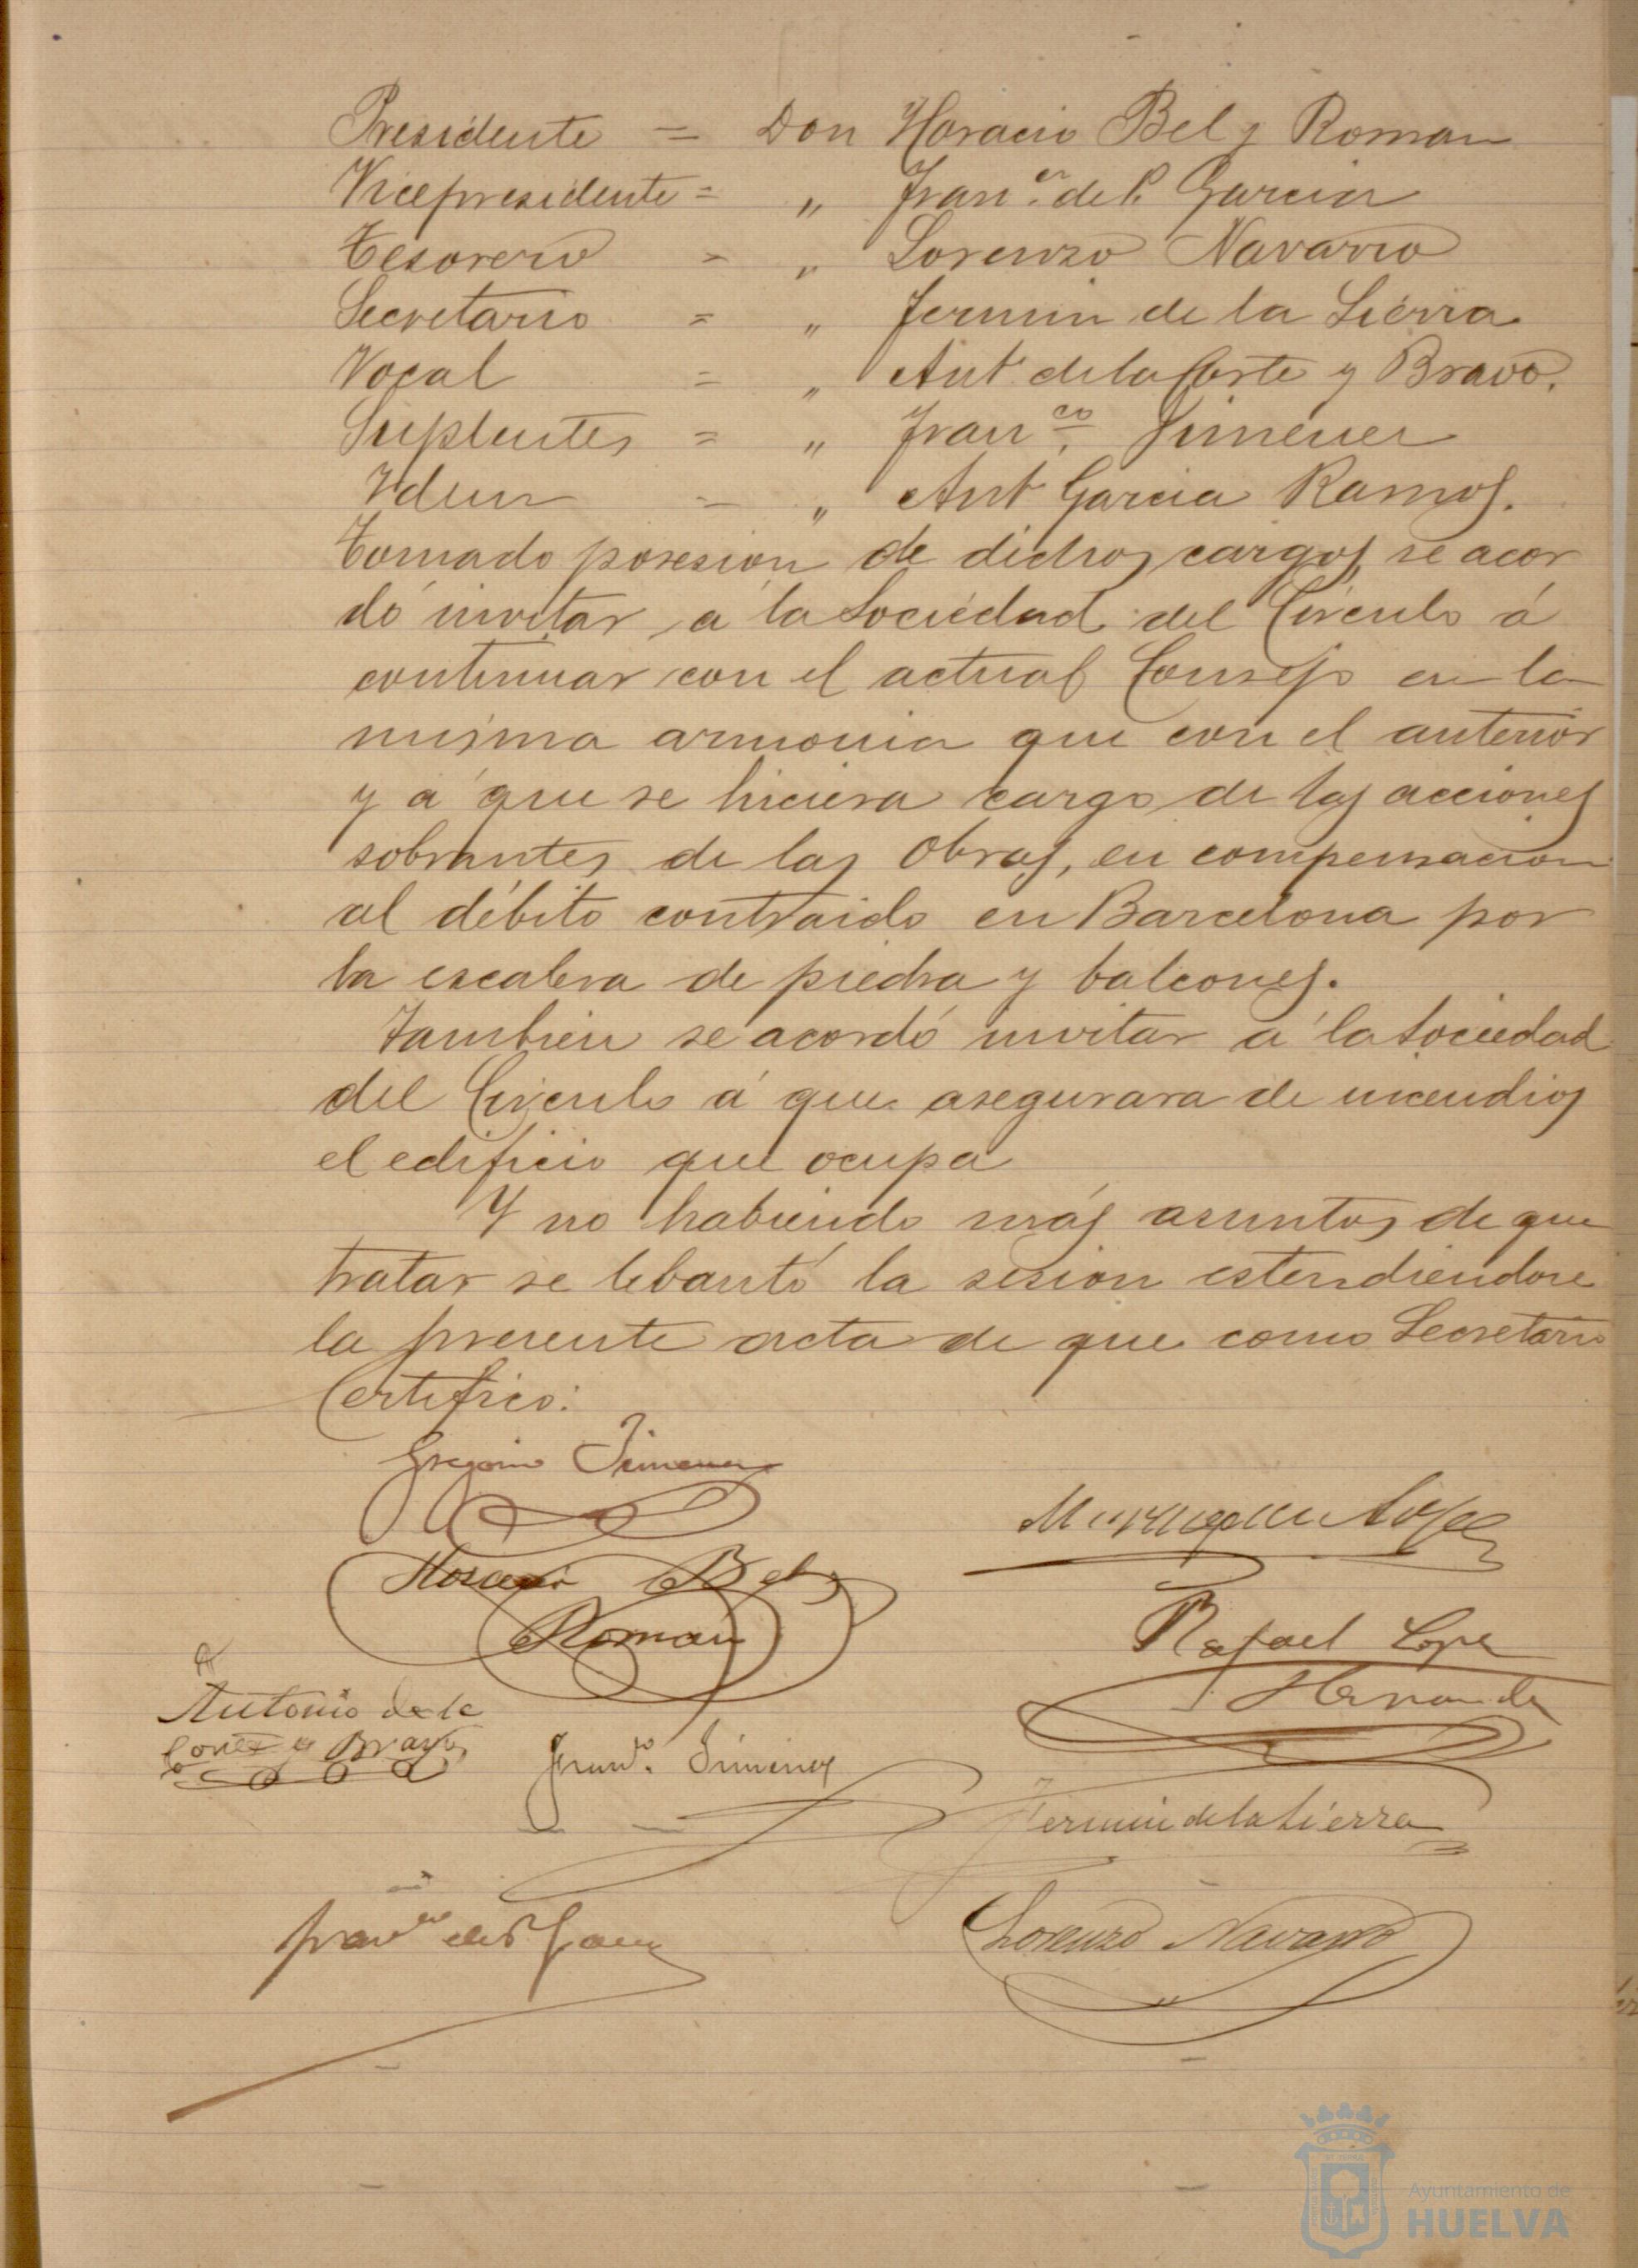 Presidente = Don Horacio Bel y Roman
Vicepresidente = " Fran.co de P. Garcia
Tesorero = " Lorenzo Navarro
Secretario = " Fermin de la Sierra
Vocal = " Ant. de la Corte y Bravo.
Suplentes = " Fran.co Jimenez
Idem = " Ant. Garcia Ramos.
Tomado posesion de dichos cargos, se acor
dó invitar á la Sociedad del Círculo á
continuar con el actual Consejo en la
misma armonia que con el anterior
y á que se hiciera cargo de las acciones
sobrantes de las Obras, en compensacion
al débito contraido en Barcelona por
la escalera de piedra y balcones.
Tambien se acordó invitar á la Sociedad
del Círculo á que asegurara de incendios
el edificio que ocupa
Y no habiendo más asuntos de que
tratar se lebantó la sesion estendiendose
la presente acta de que como Secretario
Certifico:
Gregorio Jimenez
Horacio Bel y
Roman
Rafael Lopez
Hernandez
Antonio de la
Corte y Bravo
Fran.co Jimenez
Fermin de la Sierra
Fran.co de P. Garcia
Lorenzo Navarro
Ayuntamiento de
HUELVA